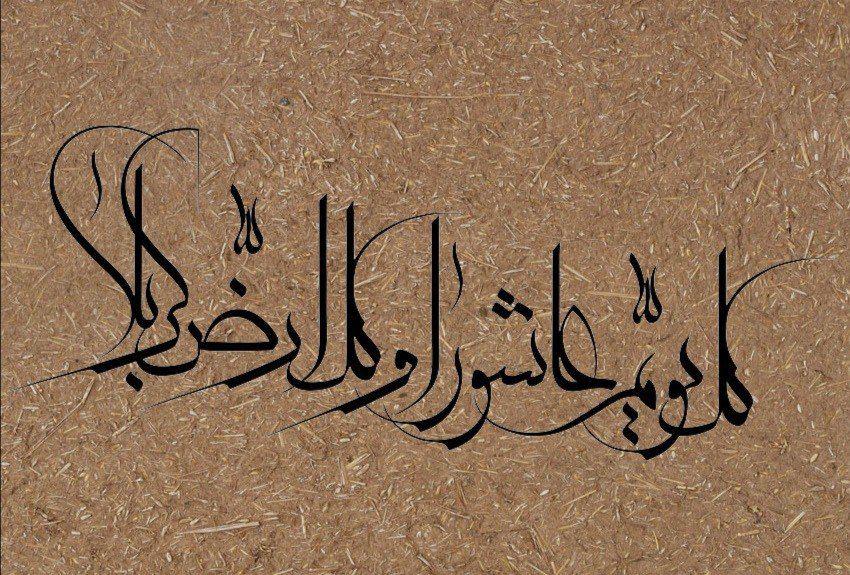 كل يومٍ عاشورا و كل ارضٍ كربلا